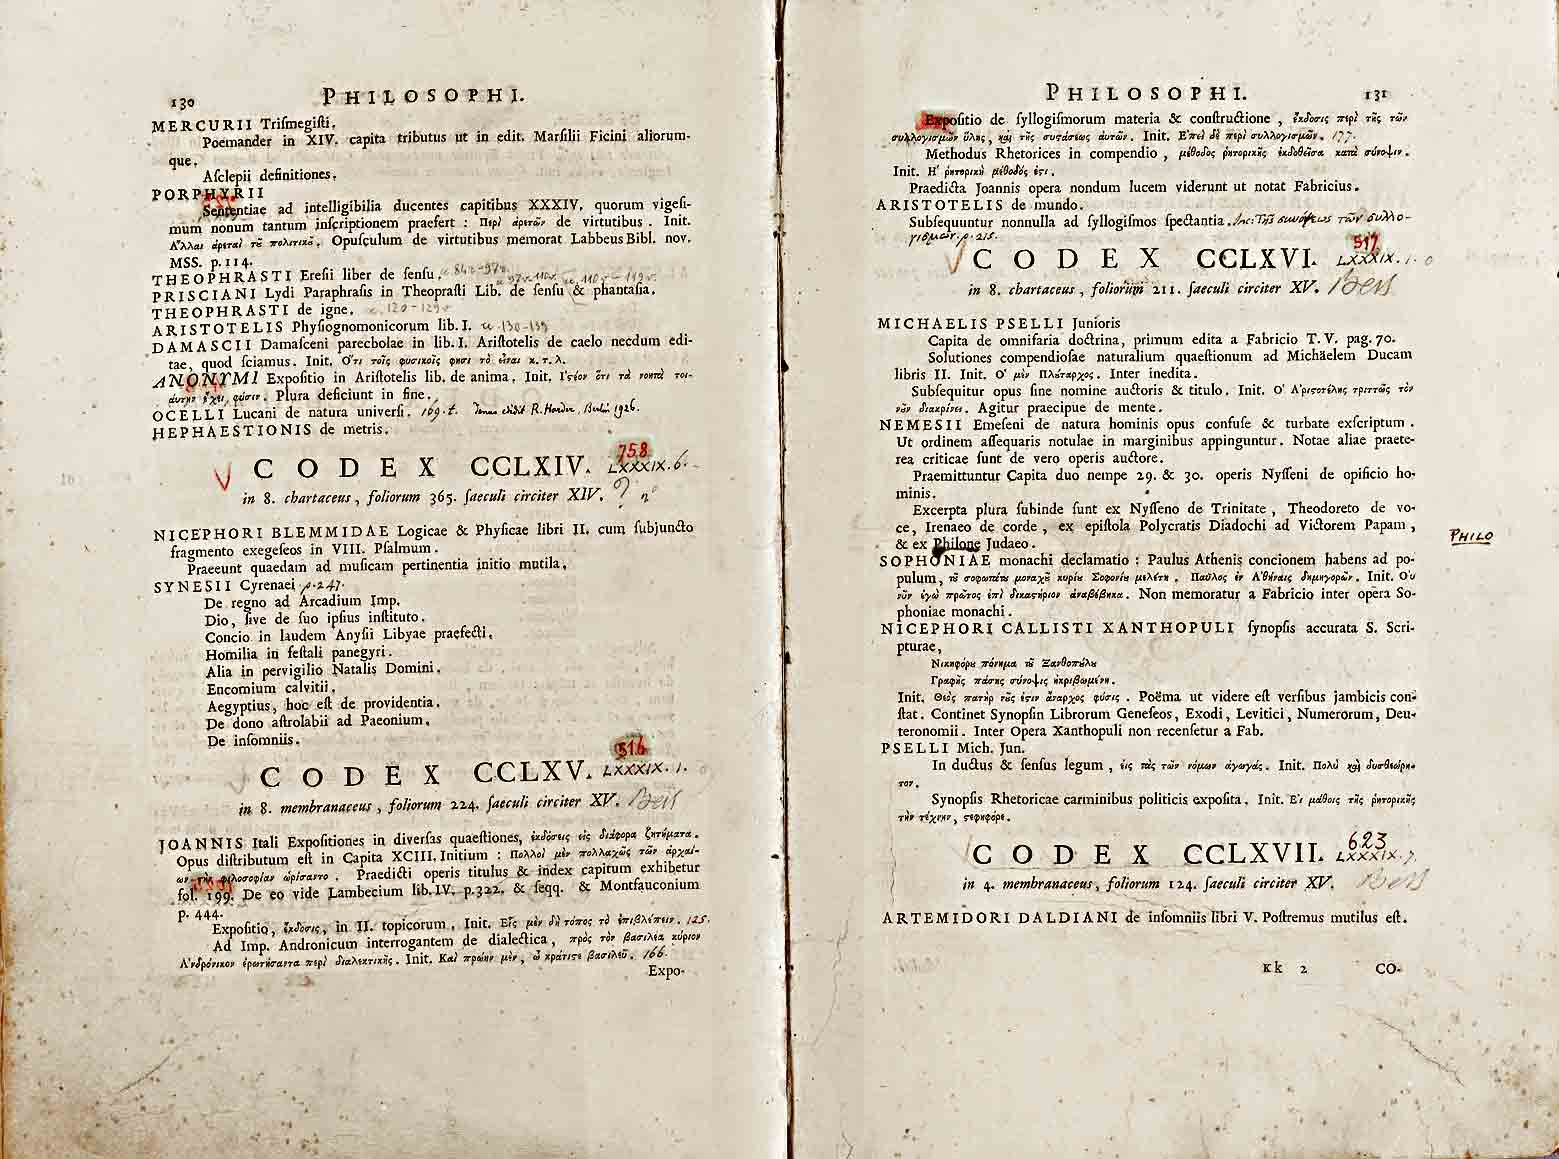 130 PHILOSOPHI.
MERCURII Triſmegiſti.
Poemander in XIV. capita tributus ut in edit. Marſilii Ficini aliorum-
que.
Aſclepii definitiones.
PORPHYRII
Sententiae ad intelligibilia ducentes capitibus XXXIV. quorum vigeſi-
mum nonum tantum inſcriptionem praefert : Περὶ ἀρετῶν de virtutibus . Init.
Α῎λλαι ἀρεταὶ τοῦ πολιτικοῦ. Opuſculum de virtutibus memorat Labbeus Bibl. nov.
MSS. p. 114.
THEOPHRASTI Ereſii liber de ſenſu. 84v-97v
PRISCIANI Lydi Paraphraſis in Theopraſti Lib. de ſenſu & phantaſia.
THEOPHRASTI de igne. 120-129v
ARISTOTELIS Phyſiognomonicorum lib. I. 130-139
DAMASCII Damaſceni parecbolae in lib. I. Ariſtotelis de caelo necdum edi-
tae, quod ſciamus. Init. Ο῞τι τοῖς φυσικοῖς φησι τὸ εἶναι κ. τ. λ.
ANONYMI Expoſitio in Ariſtotelis lib. de anima. Init. Ι᾽στέον ὅτι τὰ νοητὰ τοι-
αύτην ἔχει φύσιν. Plura deficiunt in fine.
OCELLI Lucani de natura univerſi. 169. t. edidit R. Harder, Berlin 1926.
HEPHAESTIONIS de metris.
758
CODEX CCLXIV. LXXXIX.6.
in 8. chartaceus, foliorum 365. ſaeculi circiter XIV. ?
NICEPHORI BLEMMIDAE Logicae & Phyſicae libri II. cum ſubjuncto
fragmento exegeſeos in VIII. Pſalmum.
Praeeunt quaedam ad muſicam pertinentia initio mutila.
SYNESII Cyrenaei p. 247.
De regno ad Arcadium Imp.
Dio, ſive de ſuo ipſius inſtituto.
Concio in laudem Anyſii Libyae praefecti.
Homilia in feſtali panegyri.
Alia in pervigilio Natalis Domini.
Encomium calvitii.
Aegyptius, hoc eſt de providentia.
De dono aſtrolabii ad Paeonium.
De inſomniis.
516
CODEX CCLXV. LXXXIX.1.
in 8. membranaceus, foliorum 224. ſaeculi circiter XV.
JOANNIS Itali Expoſitiones in diverſas quaeſtiones, ἐκδόσεις εἰς διάφορα ζητήματα.
Opus diſtributum eſt in Capita XCIII. Initium : Πολλοὶ μὲν πολλαχῶς τῶν ἀρχαί-
ων τὴν φιλοσοφίαν ὡρίσαντο. Praedicti operis titulus & index capitum exhibetur
fol. 199. De eo vide Lambecium lib. IV. p. 322. & ſeqq. & Montfauconium
p. 444.
Expoſitio, ἔκδοσις, in II. topicorum. Init. Εἷς μὲν δὴ τόπος τὸ ἐπιβλέπειν. 125.
Ad Imp. Andronicum interrogantem de dialectica, πρὸς τὸν βασιλέα κύριον
Α᾽νδρόνικον ἐρωτήσαντα περὶ διαλεκτικῆς. Init. Καὶ πρώην μὲν, ὦ κράτιστε βασιλεῦ. 166.
Expo-
PHILOSOPHI. 131
Expoſitio de ſyllogiſmorum materia & conſtructione, ἔκδοσις περὶ τῆς τῶν
συλλογισμῶν ὕλης, καὶ τῆς συστάσεως αὐτῶν. Init. Ε᾽πεὶ δὲ περὶ συλλογισμῶν. 177.
Methodus Rhetorices in compendio, μέθοδος ῥητορικῆς ἐκδοθεῖσα κατὰ σύνοψιν.
Init. Η῾ ῥητορικὴ μέθοδός ἐστι.
Praedicta Joannis opera nondum lucem viderunt ut notat Fabricius.
ARISTOTELIS de mundo.
Subſequuntur nonnulla ad ſyllogiſmos ſpectantia. Inc: Τῆς συνόψεως τῶν συλλο-
γισμῶν p. 215.
517
CODEX CCLXVI. LXXXIX.1.
in 8. chartaceus, foliorum 211. ſaeculi circiter XV.
MICHAELIS PSELLI Junioris
Capita de omnifaria doctrina, primum edita a Fabricio T. V. pag. 70.
Solutiones compendioſae naturalium quaeſtionum ad Michäelem Ducam
libris II. Init. Ο῾ μὲν Πλούταρχος. Inter inedita.
Subſequitur opus ſine nomine auctoris & titulo. Init. Ο῾ Α᾽ριστοτέλης τριττῶς τὸν
νοῦν διακρίνει. Agitur praecipue de mente.
NEMESII Emeſeni de natura hominis opus confuſe & turbate exſcriptum.
Ut ordinem aſſequaris notulae in marginibus appinguntur. Notae aliae praete-
rea criticae ſunt de vero operis auctore.
Praemittuntur Capita duo nempe 29. & 30. operis Nyſſeni de opificio ho-
minis.
Excerpta plura ſubinde ſunt ex Nyſſeno de Trinitate, Theodoreto de vo-
ce, Irenaeo de corde, ex epiſtola Polycratis Diadochi ad Victorem Papam,
& ex Philone Judaeo.
PHILO
SOPHONIAE monachi declamatio : Paulus Athenis concionem habens ad po-
pulum, τοῦ σοφωτάτου μοναχοῦ κυρίου Σοφονίου μελέτη. Παῦλος ἐν Α᾽θήναις δημηγορῶν. Init. Ου᾽
νῦν ἐγὼ πρῶτος ἐπὶ δικαστήριον ἀναβέβηκα. Non memoratur a Fabricio inter opera So-
phoniae monachi.
NICEPHORI CALLISTI XANTHOPULI ſynopſis accurata S. Scri-
pturae,
Νικηφόρου πόνημα τοῦ Ξανθοπούλου
Γραφῆς πάσης σύνοψις ἠκριβωμένη.
Init. Θεὸς πατὴρ τῶς ἐστιν ἄναρχος φύσις. Poëma ut videre eſt verſibus jambicis con-
ſtat. Continet Synopſin Librorum Geneſeos, Exodi, Levitici, Numerorum, Deu-
teronomii. Inter Opera Xanthopuli non recenſetur a Fab.
PSELLI Mich. Jun.
In ductus & ſenſus legum, εἰς τὰς τῶν νόμων ἀγωγάς. Init. Πολὺ καὶ δυσθεώρη-
τον.
Synopſis Rhetoricae carminibus politicis expoſita. Init. Ε᾽ι μάθοις τῆς ῥητορικῆς
τὴν τέχνην, στεφηφόρε.
623
CODEX CCLXVII. LXXXIX.7.
in 4. membranaceus, foliorum 124. ſaeculi circiter XV.
ARTEMIDORI DALDIANI de inſomniis libri V. Poſtremus mutilus eſt.
Kk 2 CO-